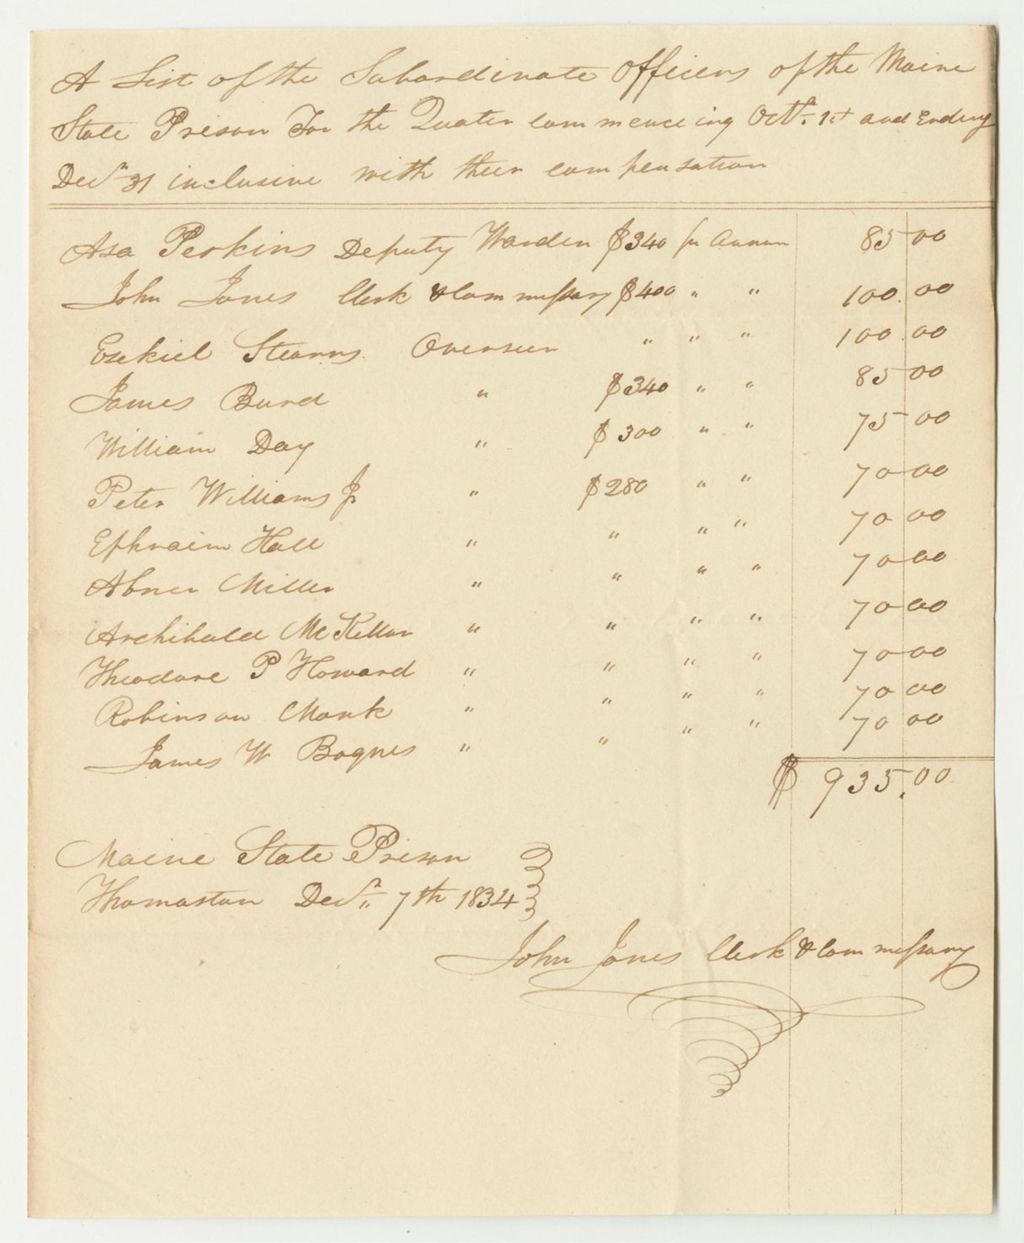 A List of the Subordinate Officers of the Maine
State Prison For the Quater commenceing Octr. 1st and Ending
Decr 31 inclusive with their compensation
Asa Perkins Deputy Warden $340 pr Annum 85 00
John Jones Clerk & Commissary $400 " " 100.00
Ezekiel Stearns Overseer " " " 100.00
James Burd " $340 " " 85 00
William Day " $300 " " 75 00
Peter Williams Jr " $280 " " 70 00
Ephraim Hall " " " " 70 00
Abner Miller " " " " 70 00
Archibald McKellar " " " " 70 00
Theodore P Howard " " " " 70 00
Robinson Monk " " " " 70 00
James W Bognes " " " " 70 00
$ 935.00
Maine State Prison
Thomaston Decr. 7th 1834
John Jones Clerk & Commissary